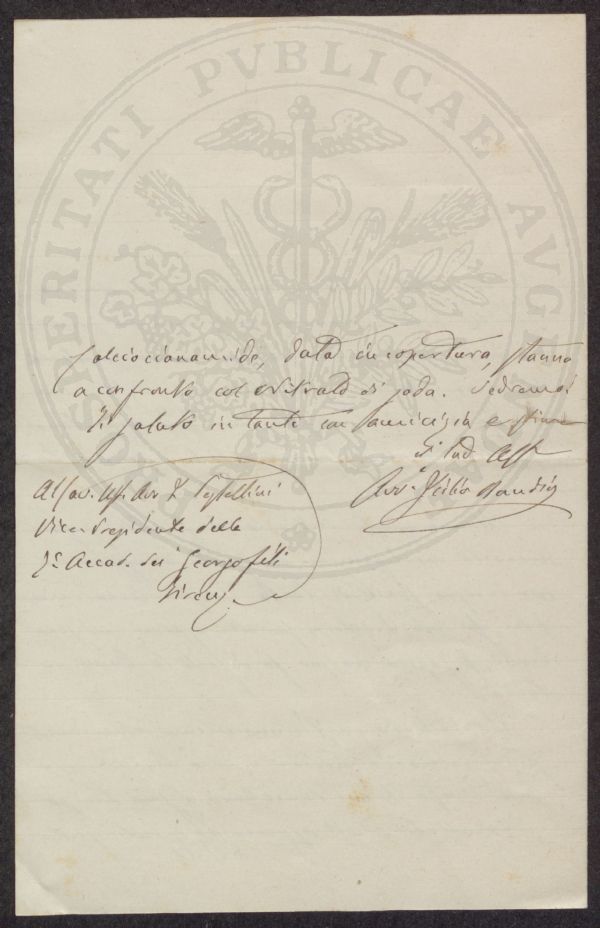 PROSPERITATI PVBLICAE AVGENDAE
Calciocianamide, data in copertura, stanno
a confronto col Nitrato di soda. Vedremo!
Ti saluto intanto con amicizia e stima
il tuo aff
Avv.
Al Cav. Uff. Avv.
Vice-Presidente della
R. Accad. dei Georgofili
Firenze